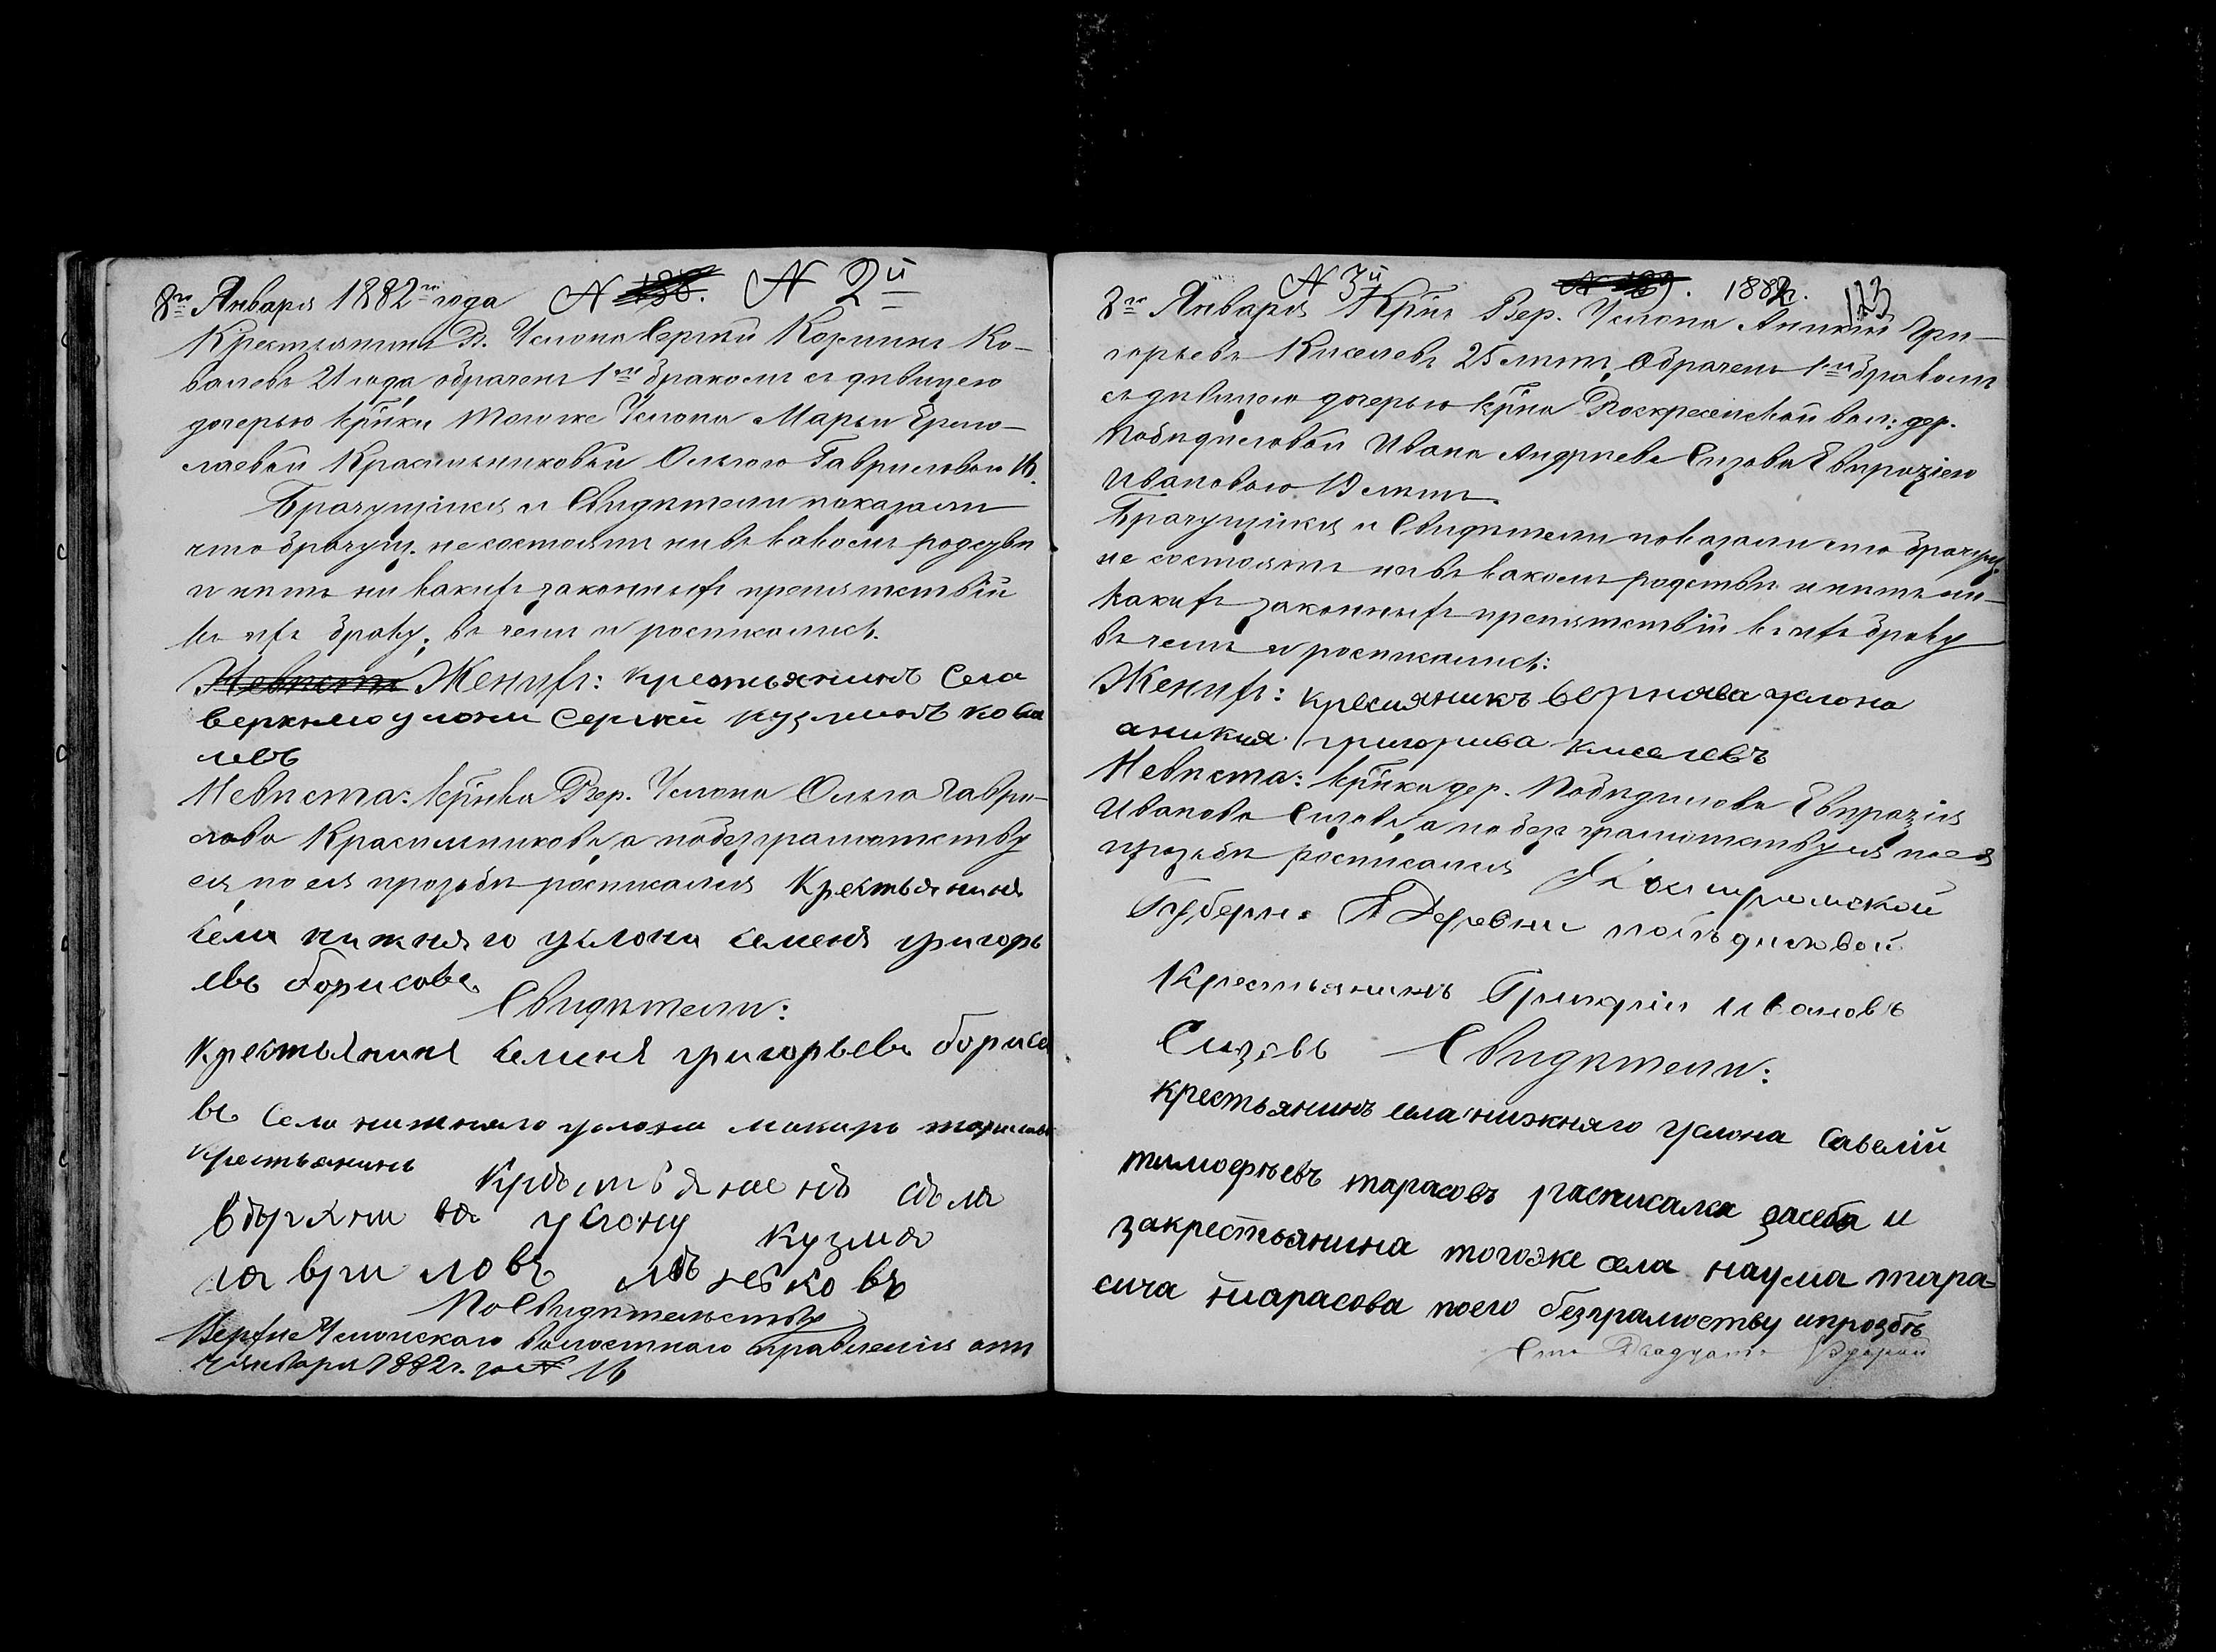 8го Января 1882го года № 138. № 2й
Крестьянинъ В. Услона Сергѣй Козминъ Ко-
валевъ 21 года обрачен 1мъ бракомъ съ дѣвицею
дочерью кр̃нки тогоже Услона Марьи Ермо-
лаевой Красильниковой Ольгою Гавриловою 18.
Брачущіися и Свидѣтели показали
что брачущ. не состоятъ ни въ какомъ родствѣ
и нѣтъ ни какихъ законныхъ препятствій
къ ихъ браку, въ чемъ и росписались.
Невѣста Женихъ: крестьянинъ Села
верхнлго услони Сергѣй кузминъ кова
левъ
Невѣста: кр̃нка Вер. Услона Ольга Гаври-
лова Красильникова, а побезграмотству
ея, по ея прозьбѣ росписался крестьянинъ
села нижняго услона семенъ григорь
евъ борисовъ
Свидѣтели:
крестьянинъ семинъ григорьевъ борисо
въ Села нижняго услона макаръ
крестьянинъ крѣстьянаенъ сѣла
вѣрхни ва услону кузма
гаври ловъ
По Свидѣтельству
Верхне Услонскаго волостнаго правленія отъ
7 января 1882 г. за № 16
№ 3й № 139. 1882 г. 123
8го Января Кр̃нъ Вер. Услона Аникій Гри-
горьевъ Киселевъ 25 лѣтъ, обраченъ 1мъ бракомъ
съ дѣвицею дочерью кр̃на Воскресенской вол: дер.
Побѣдиловой Ивана Андреева Сизова Евпразіею
Ивановою 19 лѣтъ.
Брачущіися и Свидѣтели показали что брачущ.
не состоятъ ни въ какомъ родствѣ и нѣтъ ни-
какихъ законныхъ препятствій къ ихъ браку
въ чемъ и росписались:
Женихъ: кресиянинъ верхнява услона
аникия григорива киселевъ
Невѣста: кр̃нка дер. Побѣдилова Евпразія
Иванова Сизова, а по безграмотству ея по ея
прозьбѣ росписался Костромской
Губерн. Деревни побѣдиловой
Крестьянинъ Григорій Ивановъ
Сизовъ Свидѣтели:
крестьянинъ села нижняго услона Савелій
тимофѣевъ тарасовъ расписалса засебя и
закрестьянина тогоже села наума тара-
сича тарасова поего безграмоству ипрозбѣ
Сто Двадцать Второй